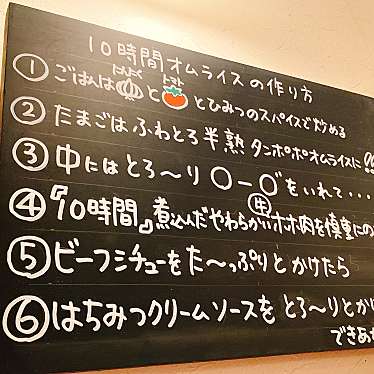 10時間オムライスの作り方
① ごはんは と トマト とひみつのスパイスで炒める
② たまごはふわとろ半熟 タンポポオムライスに!!
③ 中にはとろ〜り 〇ー〇"をいれて・・・
④ 『10時間』煮込んだやわらかい牛ホホ肉を慎重にの
⑤ ビーフシチューをた〜っぷりとかけたら
⑥ はちみつクリームソースをとろ〜りとか
できあ